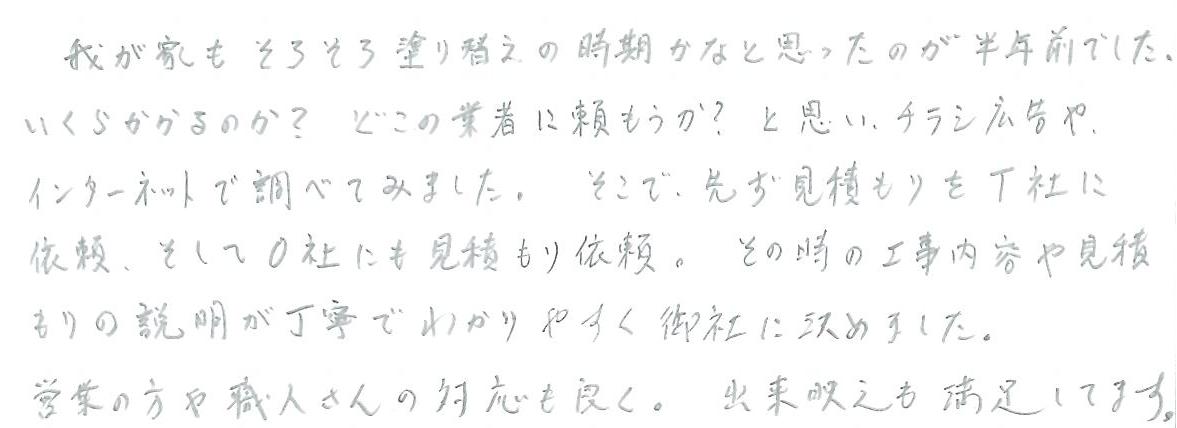 我が家もそろそろ塗り替えの時期かなと思ったのが半年前でした、
いくらかかるのか？ どこの業者に頼もうか？ と思い、チラシ広告や、
インターネットで調べてみました。 そこで、先ず見積もりをT社に
依頼、そしてO社にも見積もり依頼。 その時の工事内容や見積
もりの説明が丁寧でわかりやすく御社に決めました。
営業の方や職人さんの対応も良く。 出来映えも満足してます。